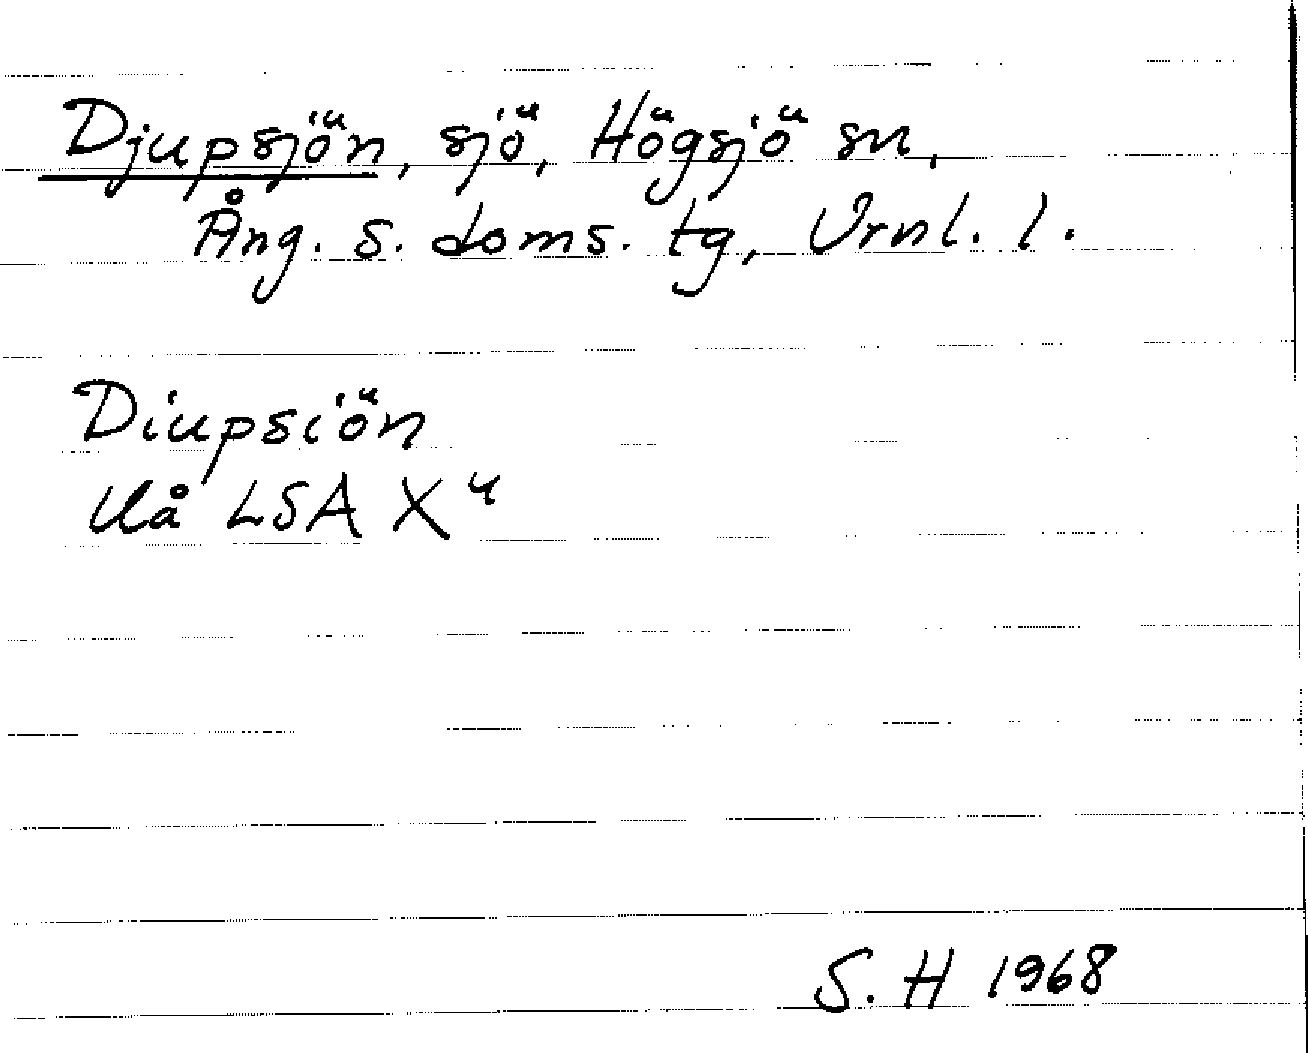 Djupsjön, sjö, Högsjö sn,
Ång. s. doms. tg, Vrnl. l.
Diupsiön
Uå LSA X 4
S. H 1968